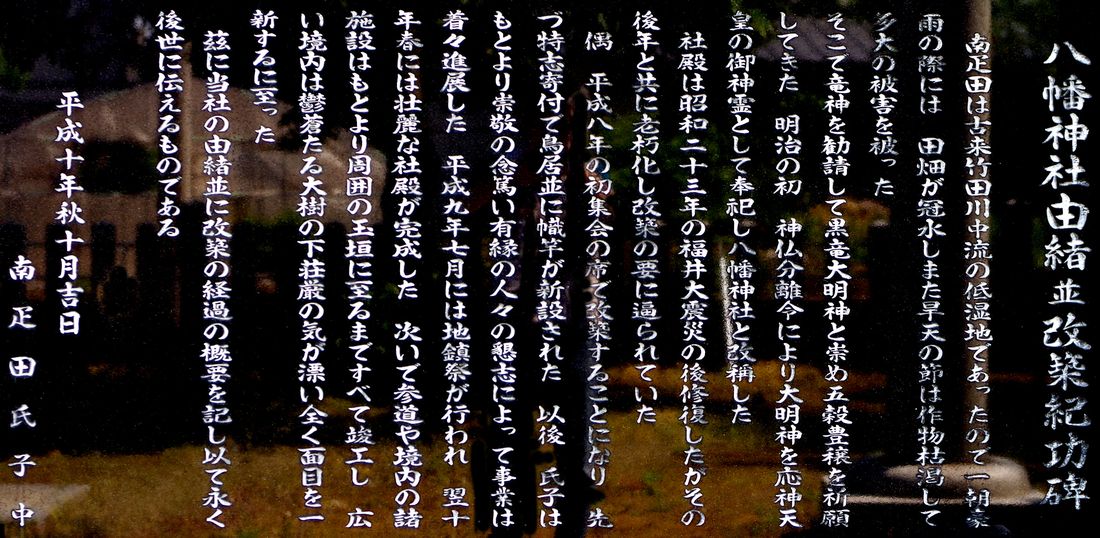 八幡神社由緒並改築紀功碑
南疋田は古来竹田川中流の低湿地であったので一朝豪
雨の際には　田畑が冠水しまた旱天の節は作物枯渇して
多大の被害を被った
そこで竜神を勧請して黒竜大明神と崇め五穀豊穣を祈願
してきた　明治の初　神仏分離令により大明神を応神天
皇の御神霊として奉祀し八幡神社と改稱した
社殿は昭和二十三年の福井大震災の後修復したがその
後年と共に老朽化し改築の要に逼られていた
偶　平成八年の初集会の席で改築することになり　先
づ特志寄付で鳥居並に幟竿が新設された　以後　氏子は
もとより崇敬の念篤い有縁の人々の懇志によって事業は
着々進展した　平成九年七月には地鎮祭が行われ　翌十
年春には壮麗な社殿が完成した　次いで参道や境内の諸
施設はもとより周囲の玉垣に至るまですべて竣工し　広
い境内は鬱蒼たる大樹の下荘厳の気が漂い全く面目を一
新するに至った
茲に当社の由緒並に改築の経過の概要を記し以て永く
後世に伝えるものである
平成十年秋十月吉日
南疋田氏子中